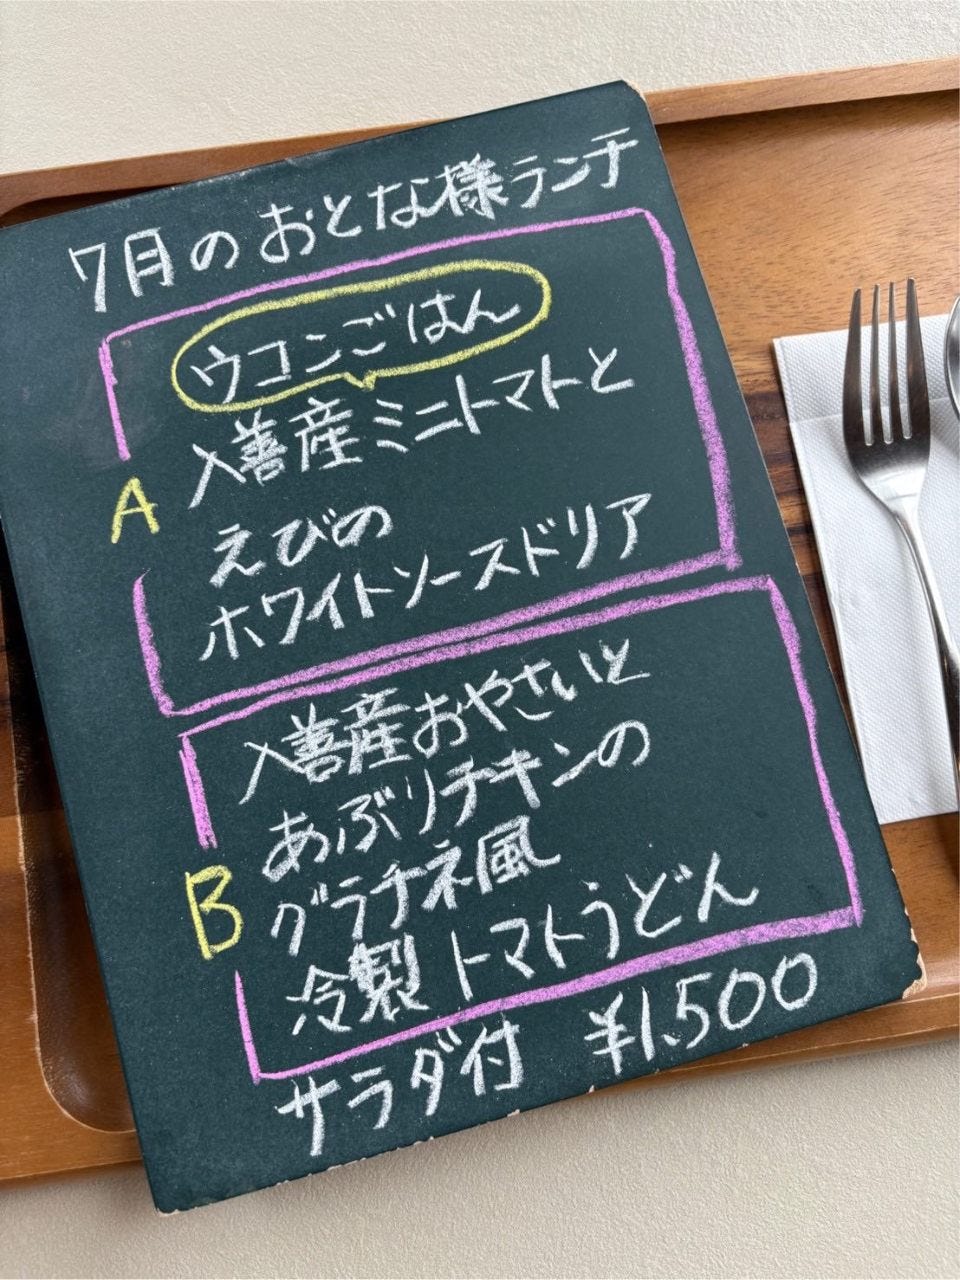 7月のおとな様ランチ
ウコンごはん
A
入善産ミニトマトと
えびの
ホワイトソースドリア
入善産おやさいと
あぶりチキンの
B
グラチネ風
冷製トマトうどん
サラダ付 ¥1.500